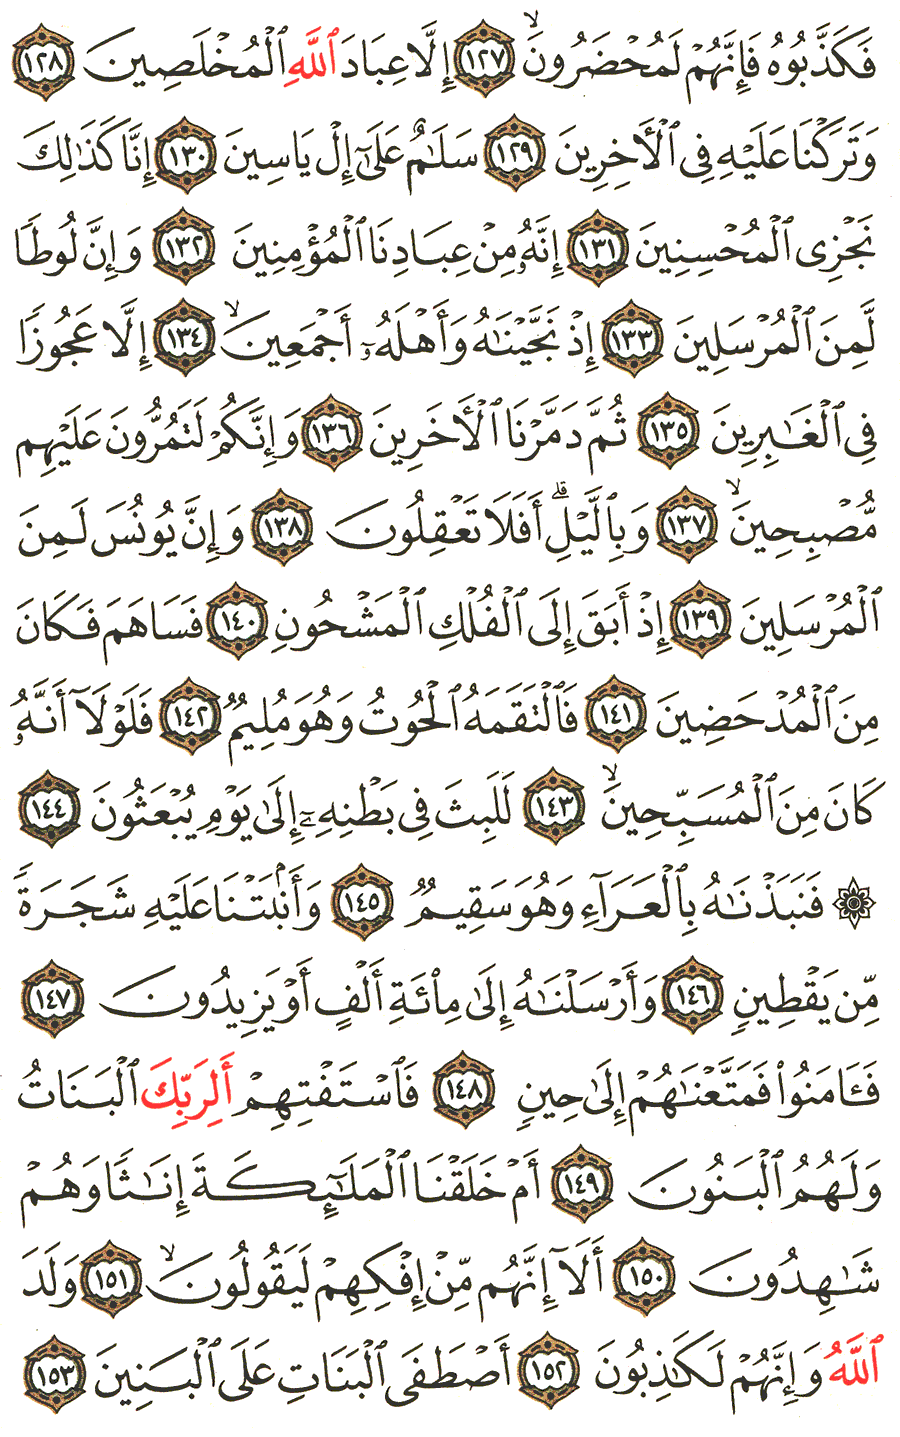 فَكَذَّبُوهُ فَإِنَّهُمْ لَمُحْضَرُونَ ۙ ١٢٧ إِلَّا عِبَادَ ٱللَّهِ ٱلْمُخْلَصِينَ ١٢٨
وَتَرَكْنَا عَلَيْهِ فِى ٱلْـَٔاخِرِينَ ١٢٩ سَلَـٰمٌ عَلَىٰٓ إِلْ يَاسِينَ ١٣٠ إِنَّا كَذَٰلِكَ
نَجْزِى ٱلْمُحْسِنِينَ ١٣١ إِنَّهُۥ مِنْ عِبَادِنَا ٱلْمُؤْمِنِينَ ١٣٢ وَإِنَّ لُوطًا
لَّمِنَ ٱلْمُرْسَلِينَ ١٣٣ إِذْ نَجَّيْنَـٰهُ وَأَهْلَهُۥٓ أَجْمَعِينَ ۙ ١٣٤ إِلَّا عَجُوزًا
فِى ٱلْغَـٰبِرِينَ ١٣٥ ثُمَّ دَمَّرْنَا ٱلْـَٔاخَرِينَ ١٣٦ وَإِنَّكُمْ لَتَمُرُّونَ عَلَيْهِم
مُّصْبِحِينَ ۙ ١٣٧ وَبِٱلَّيْلِ ۗ أَفَلَا تَعْقِلُونَ ١٣٨ وَإِنَّ يُونُسَ لَمِنَ
ٱلْمُرْسَلِينَ ١٣٩ إِذْ أَبَقَ إِلَى ٱلْفُلْكِ ٱلْمَشْحُونِ ١٤٠ فَسَاهَمَ فَكَانَ
مِنَ ٱلْمُدْحَضِينَ ١٤١ فَٱلْتَقَمَهُ ٱلْحُوتُ وَهُوَ مُلِيمٌ ١٤٢ فَلَوْلَآ أَنَّهُۥ
كَانَ مِنَ ٱلْمُسَبِّحِينَ ۙ ١٤٣ لَلَبِثَ فِى بَطْنِهِۦٓ إِلَىٰ يَوْمِ يُبْعَثُونَ ١٤٤
۞ فَنَبَذْنَـٰهُ بِٱلْعَرَآءِ وَهُوَ سَقِيمٌ ١٤٥ وَأَنۢبَتْنَا عَلَيْهِ شَجَرَةً
مِّن يَقْطِينٍ ١٤٦ وَأَرْسَلْنَـٰهُ إِلَىٰ مِا۟ئَةِ أَلْفٍ أَوْ يَزِيدُونَ ١٤٧
فَـَٔامَنُوا۟ فَمَتَّعْنَـٰهُمْ إِلَىٰ حِينٍ ١٤٨ فَٱسْتَفْتِهِمْ أَلِرَبِّكَ ٱلْبَنَاتُ
وَلَهُمُ ٱلْبَنُونَ ١٤٩ أَمْ خَلَقْنَا ٱلْمَلَـٰٓئِكَةَ إِنَـٰثًا وَهُمْ
شَـٰهِدُونَ ١٥٠ أَلَآ إِنَّهُم مِّنْ إِفْكِهِمْ لَيَقُولُونَ ۙ ١٥١ وَلَدَ
ٱللَّهُ وَإِنَّهُمْ لَكَـٰذِبُونَ ١٥٢ أَصْطَفَى ٱلْبَنَاتِ عَلَى ٱلْبَنِينَ ١٥٣